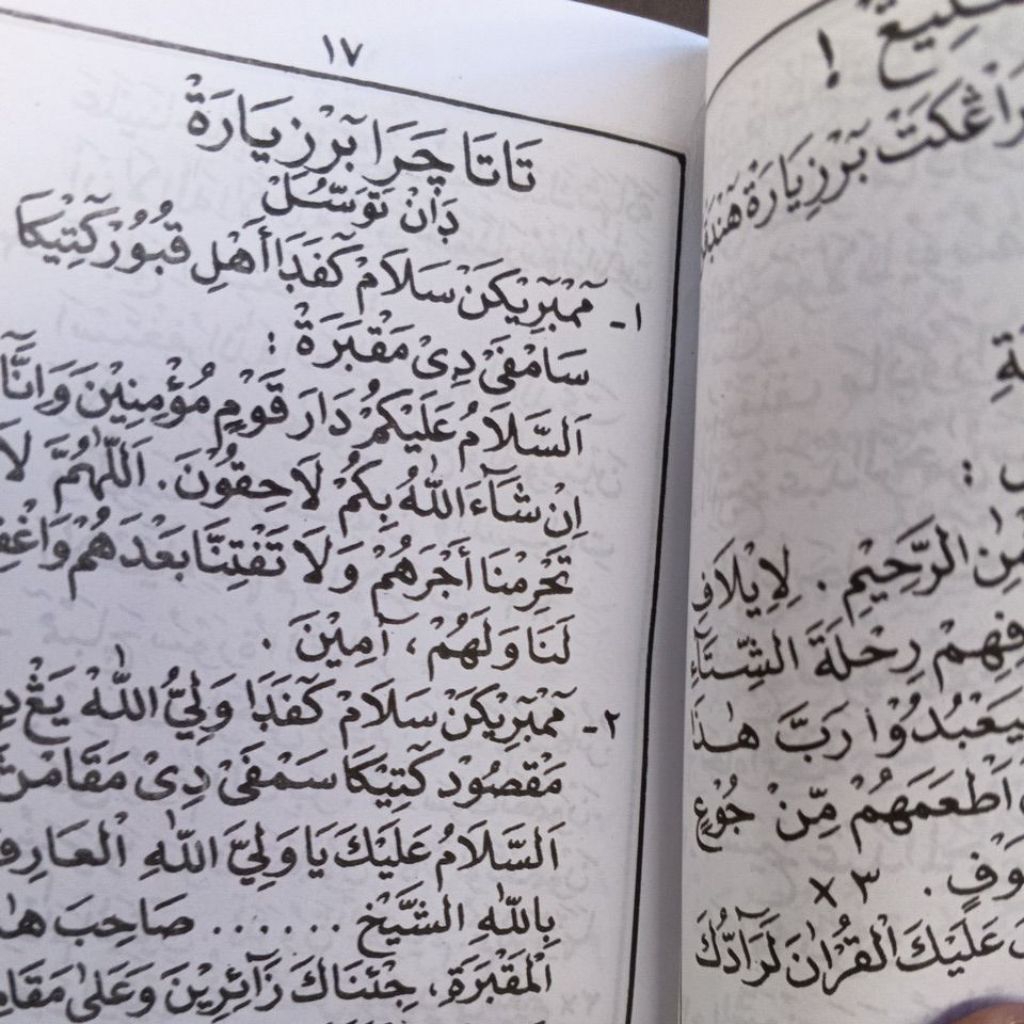 ١٧
تَاتَا چَرَا بَرْزِيَارَةْ
دَانْ تَوَسُّلْ
١- مَمْبَرِيْكَنْ سَلَامْ كَفَدَا أَهْلِ قُبُوْرْ كَتِيْكَا
سَامْفَيْ دِيْ مَقْبَرَةْ :
اَلسَّلَامُ عَلَيْكُمْ دَارَ قَوْمٍ مُؤْمِنِيْنَ وَاِنَّا
اِنْ شَآءَ اللّٰهُ بِكُمْ لَاحِقُوْنَ. اَللّٰهُمَّ لَا
تَحْرِمْنَا أَجْرَهُمْ وَلَا تَفْتِنَّا بَعْدَهُمْ
لَنَا وَلَهُمْ ، آمِيْنَ .
٢- مَمْبَرِيْكَنْ سَلَامْ كَفَدَا وَلِيُّ اللّٰهْ
مَقْصُوْد كَتِيْكَا سَمْفَيْ دِيْ
اَلسَّلَامُ عَلَيْكَ يَا وَلِيَّ اللّٰهِ
بِاللّٰهِ الشَّيْخْ ...... صَاحِبَ
الْمَقْبَرَةِ، جِئْنَاكَ زَآئِرِيْنَ وَعَلٰى
!
بَرْزِيَارَةْ
:
الرَّحِيْمِ . لِاِيْلَافِ
رِحْلَةَ الشِّتَآءِ
رَبَّ هٰذَا
اَطْعَمَهُمْ مِّنْ جُوْعٍ
. ٣ ×
عَلَيْكَ الْقُرْاٰنَ لَرَآدُّكَ